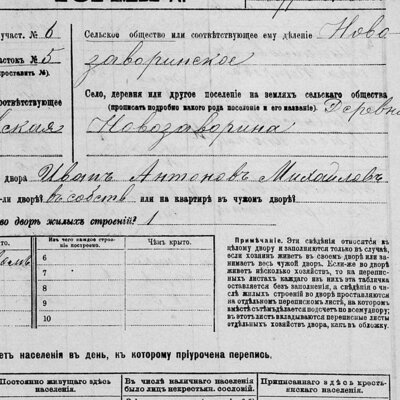 участ. № 6 Сельское общество или соотвѣтствующее ему дѣленіе Ново-
сток № 5 заворинское
проставить №).
Село, деревня или другое поселеніе на земляхъ сельскаго общества
соотвѣтствующее (прописать подробно какого рода поселеніе и его названіе). Деревня
ская Новозаворина
двора Иванъ Антоновъ Михайловъ
ли дворѣ? въ собств или на квартирѣ въ чужомъ дворѣ?
во дворѣ жилыхъ строеній? 1
то. Изъ чего каждое строе-
ніе построено. Чѣмъ крыто.
6
7
8
9
10
Примѣчаніе. Эти свѣдѣнія относятся къ
двору и заполняются только въ случаѣ,
если хозяинъ живетъ въ своемъ дворѣ или за-
нимаетъ весь чужой дворъ. Если-же во дворѣ
живетъ нѣсколько хозяйствъ, то на перепис-
ныхъ листахъ каждаго изъ нихъ эта табличка
оставляется безъ заполненія, а свѣдѣнія о чи-
слѣ жилыхъ строеній во дворѣ проставляются
на отдѣльномъ переписномъ листѣ, на которомъ
вмѣстѣ съ тѣмъ дѣлается подсчетъ по всему двору;
въ этотъ листъ вкладываются переписные листы
отдѣльныхъ хозяйствъ двора, какъ въ обложку.
етъ населенія въ день, къ которому пріурочена перепись.
Постоянно живущаго здѣсь
населенія. Въ числѣ наличнаго населенія
было лицъ некрестьян. сословій. Приписаннаго здѣсь кресть-
янскаго населенія.